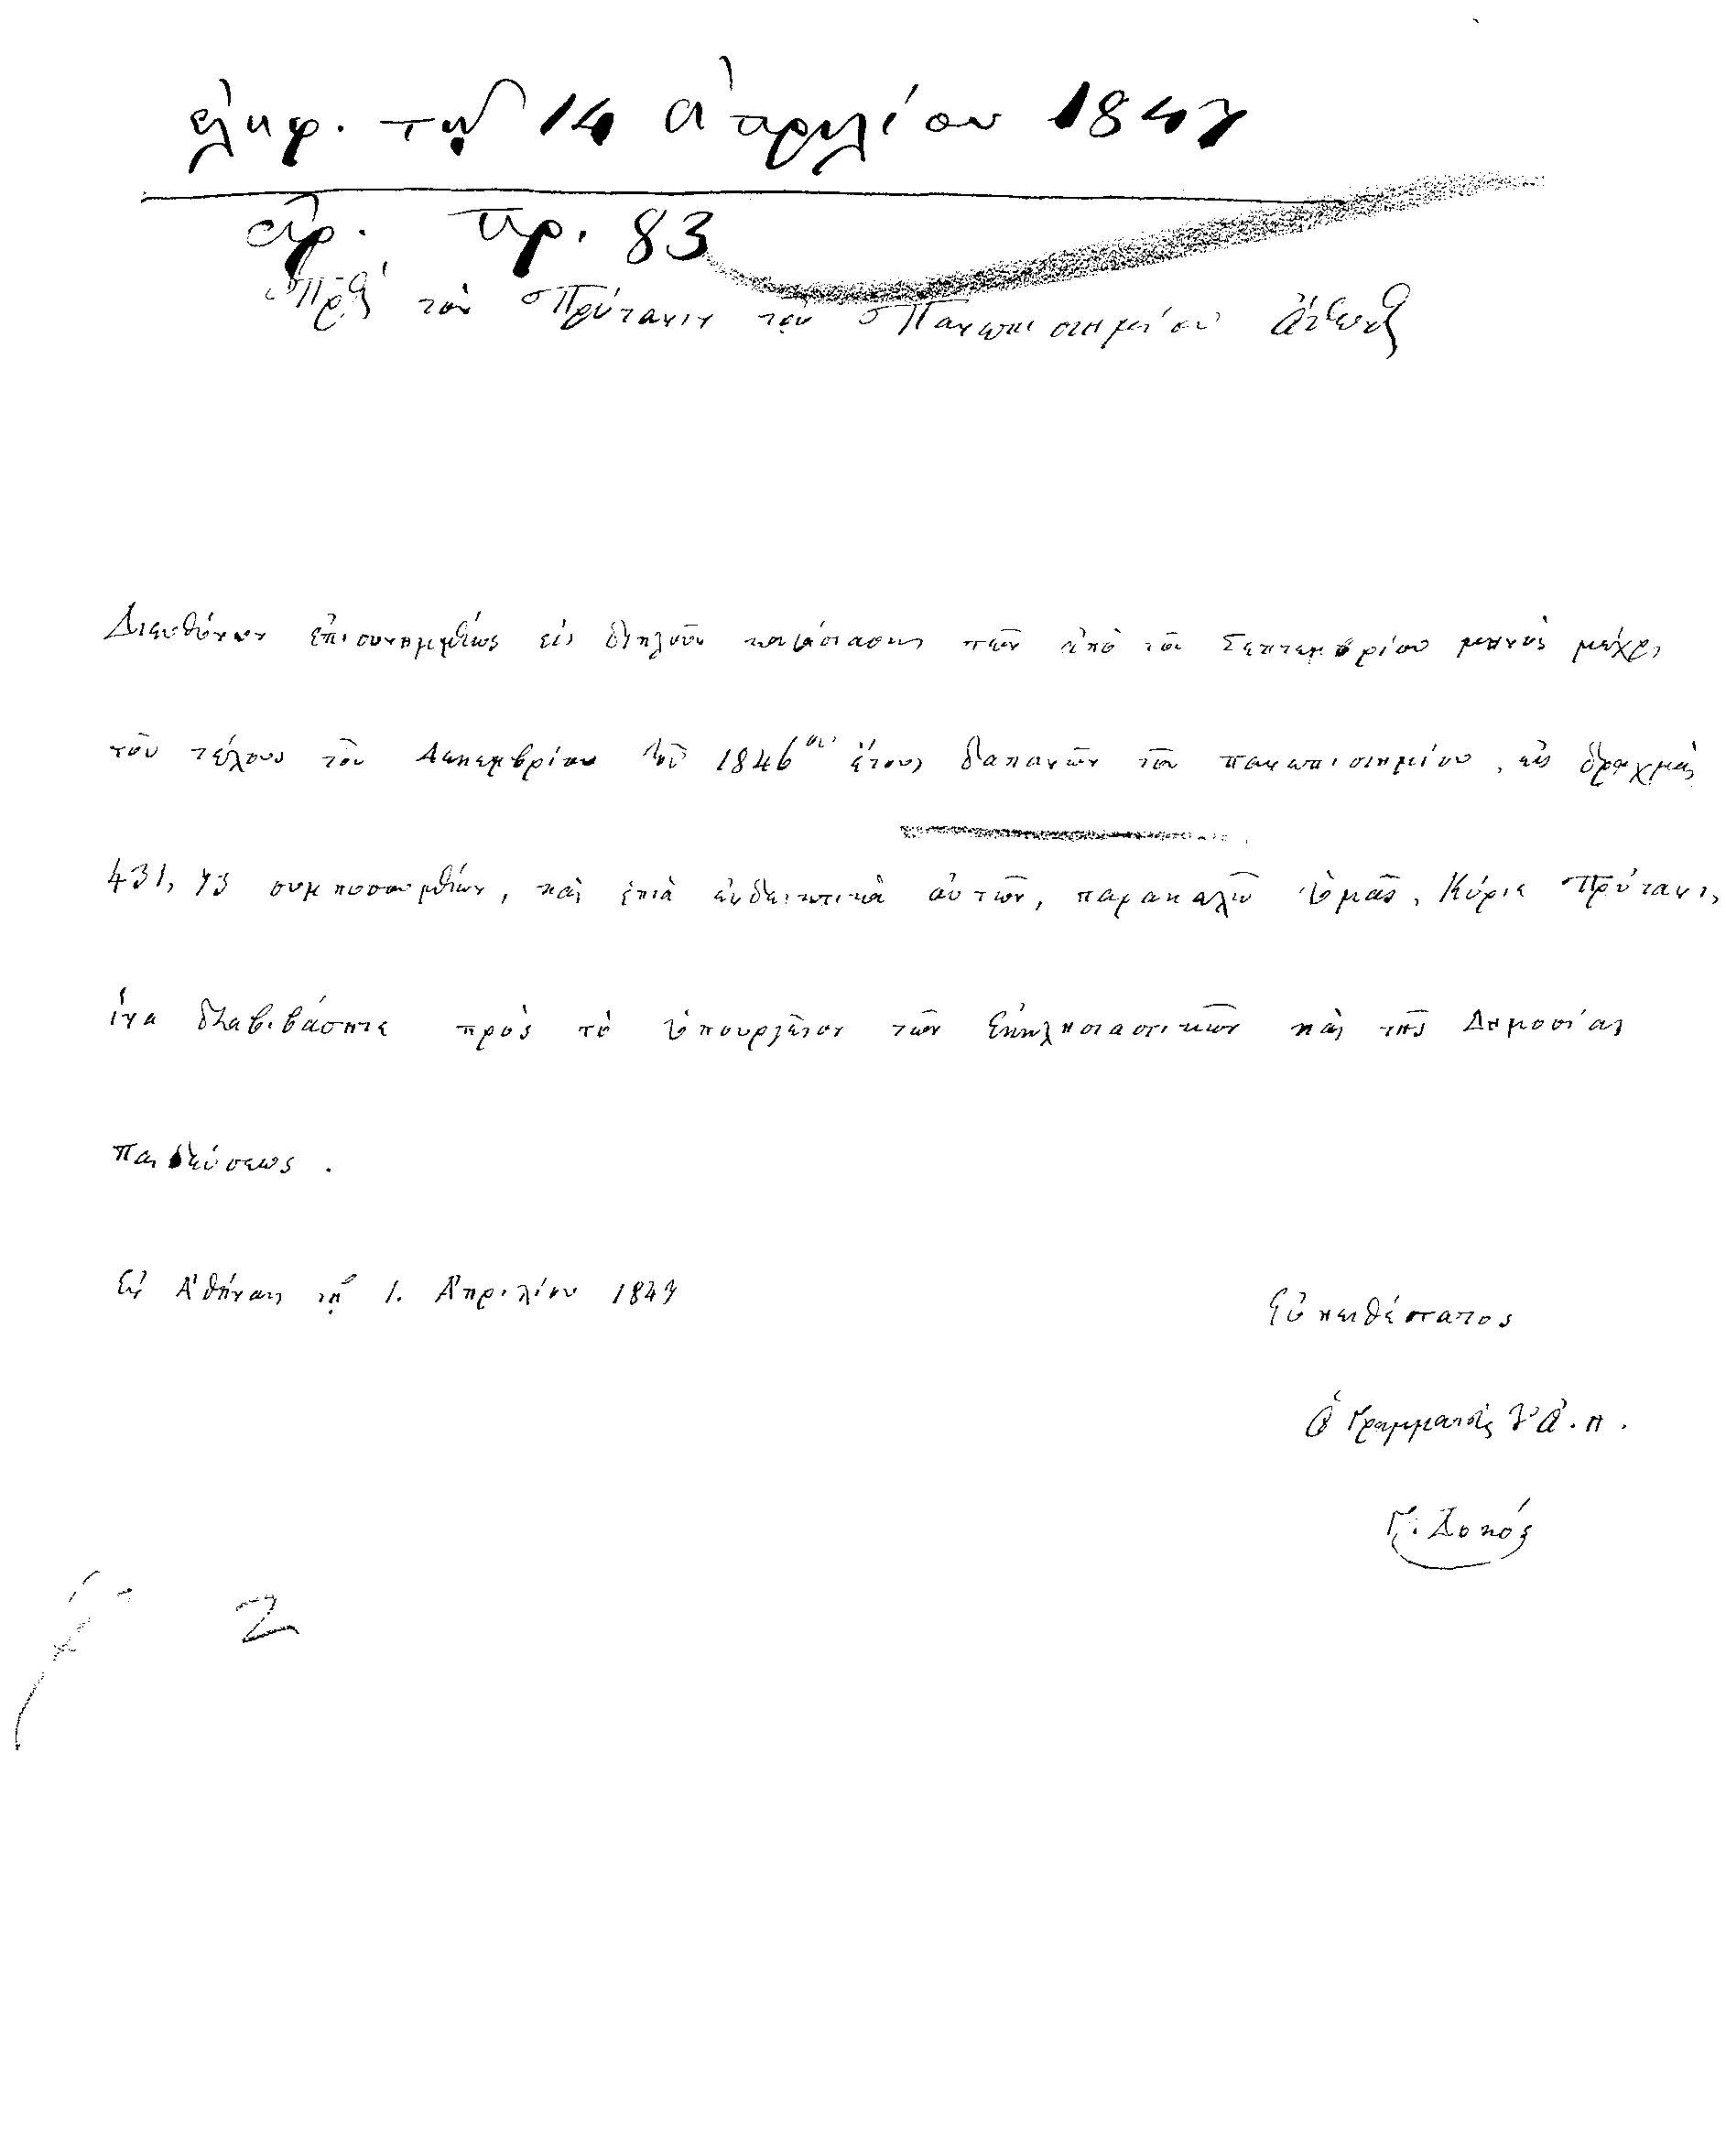 ἐλήφ. τῇ 14 Ἀπριλίου 1847
ἀρ. πρ. 83
Πρὸς τὸν Πρύτανιν τοῦ Πανεπιστημίου Ὄθωνος
Διευθύνων ἐπισυνημμένως εἰς διπλοῦν κατάστασιν τῶν ἀπὸ τοῦ Σεπτεμβρίου μηνὸς μέχρι
τοῦ τέλους τοῦ Δεκεμβρίου τοῦ 1846ου ἔτους δαπανῶν τοῦ πανεπιστημίου, εἰς δραχμὰς
431, 73 συμποσουμένων, καὶ ἑπτὰ ἐνδεικτικὰ αὐτῶν, παρακαλῶ ὑμᾶς, Κύριε Πρύτανι,
ἵνα διαβιβάσητε πρὸς τὸ ὑπουργεῖον τῶν Ἐκκλησιαστικῶν καὶ τῆς Δημοσίας
παιδεύσεως.
Ἐν Ἀθήναις τῇ 1. Ἀπριλίου 1847
Εὐπειθέστατος
Ὁ Γραμματεὺς
Γ. Δοκός
2